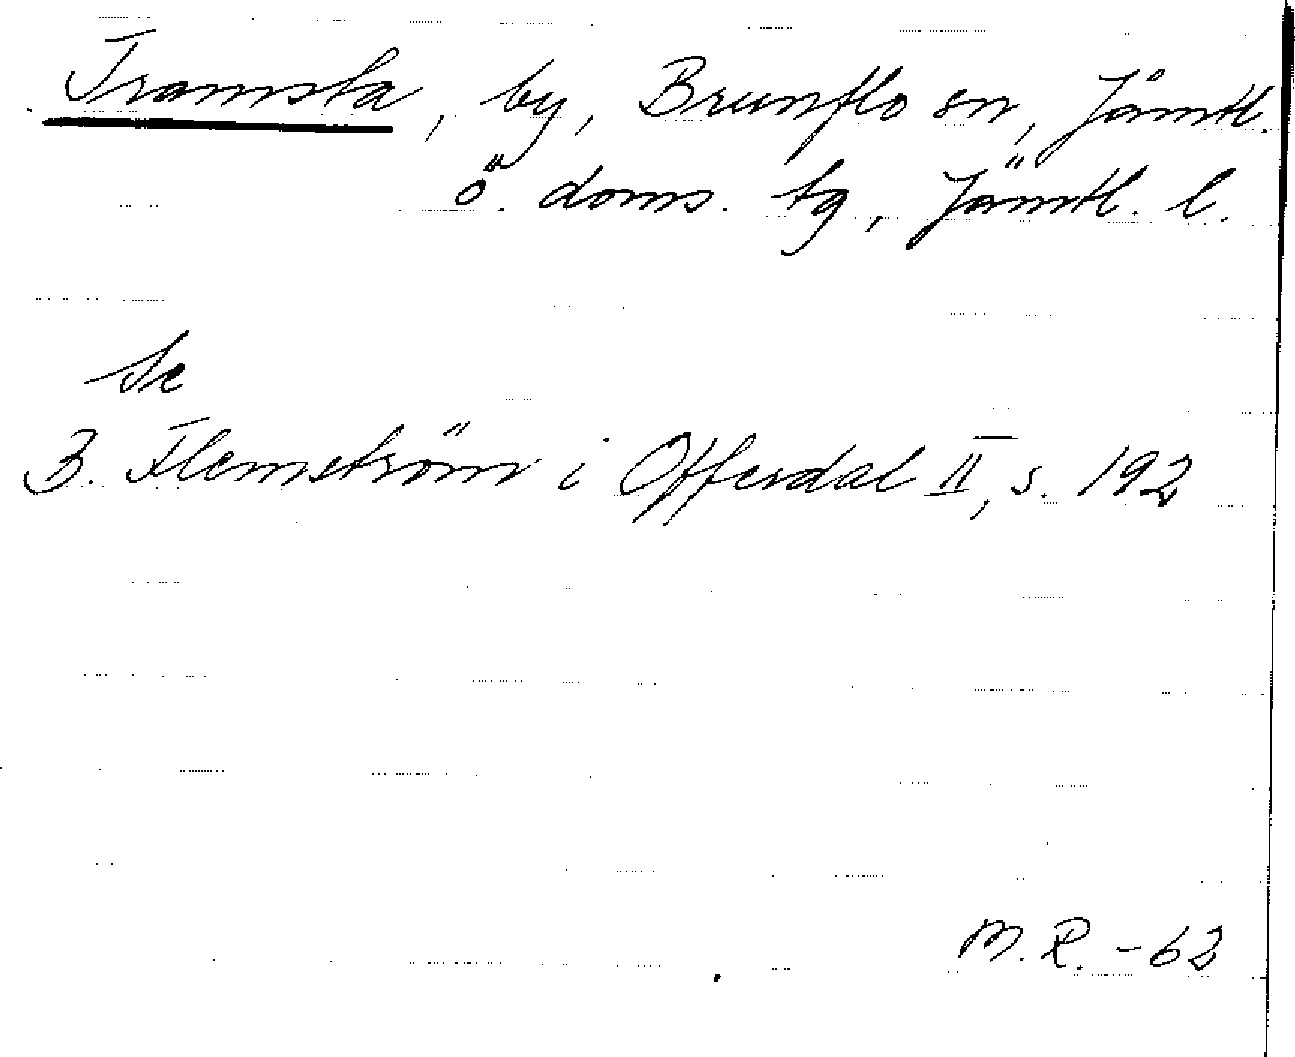 Tramsta, by, Brunflo sn, Jämtl.
ö. doms. tg, Jämtl. l.
Se
B. Flemström i Offerdal II, s. 192
M.R. -62